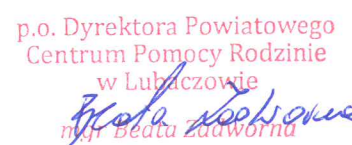 p.o. Dyrektora Powiatowego
Centrum Pomocy Rodzinie
w Lubaczowie
Beata Zadworna
mgr Beata Zadworna